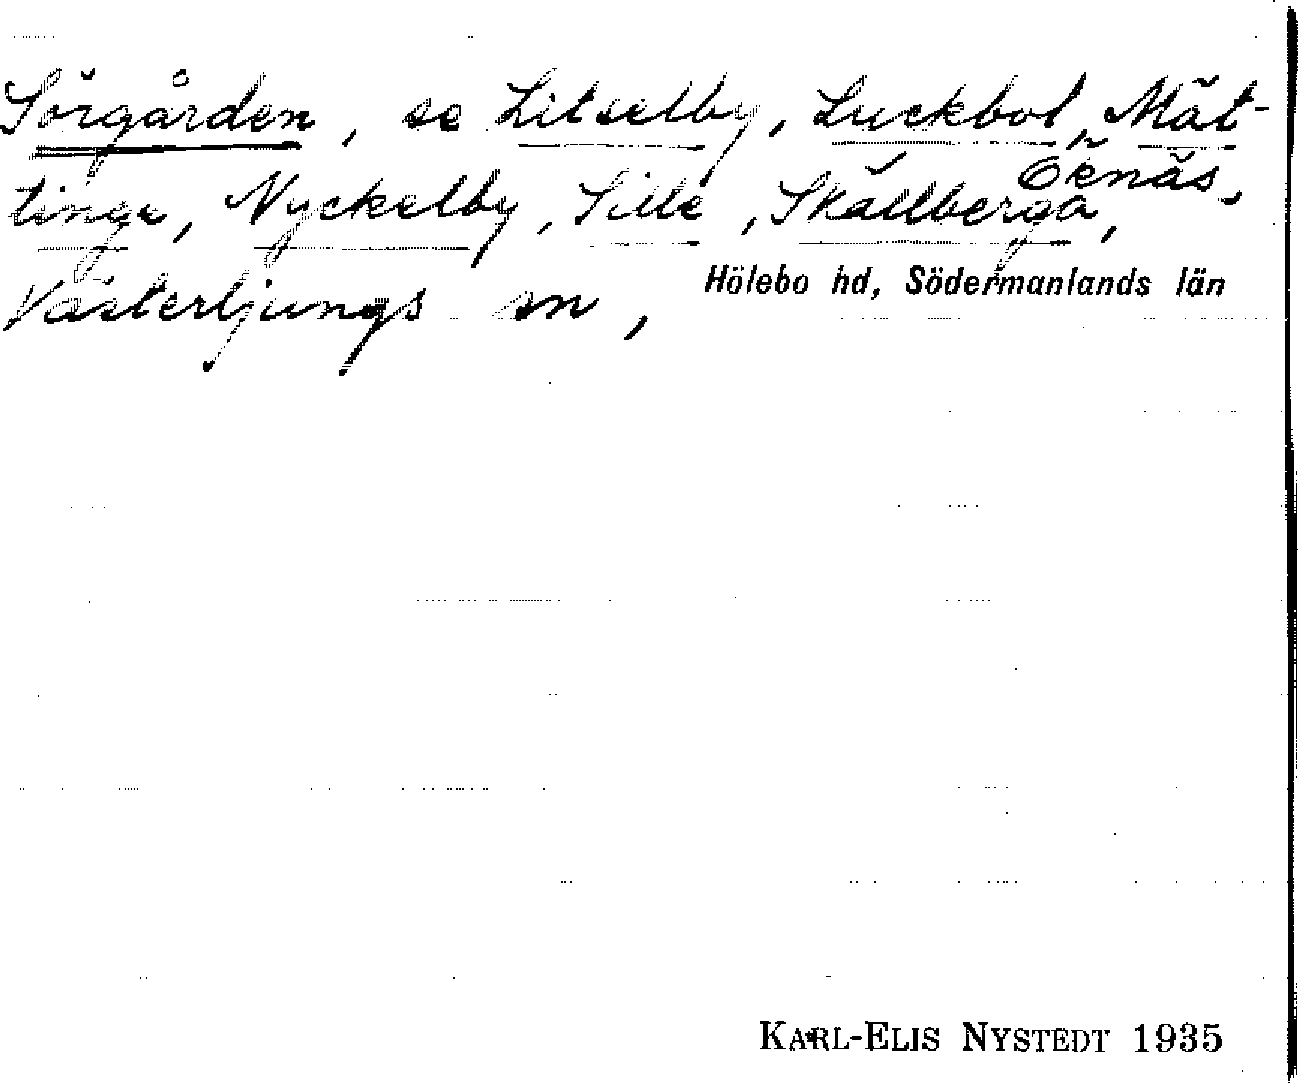 Sörgården, se Litselby, Luckbol, Mät-
tinge, Nyckelby, Sille, Skällberga, Öknäs,
Västerljungs sn, Hölebo hd, Södermanlands län
KARL-ELIS NYSTEDT 1935